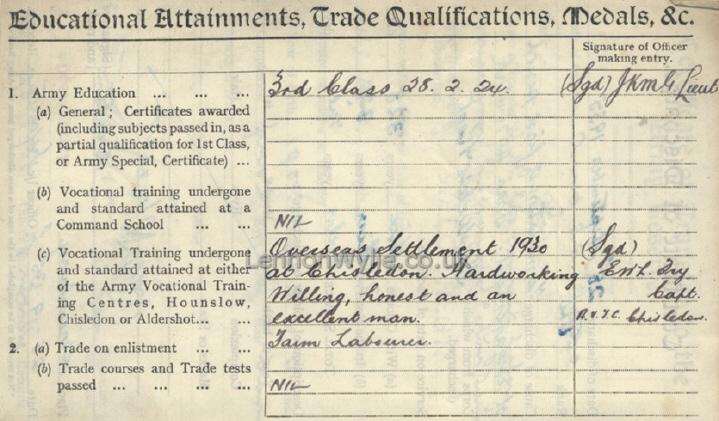 Educational Attainments, Trade Qualifications, Medals, &c.
Signature of Officer
making entry.
1. Army Education ... ... ... 3rd Class 28. 2. 24. (Sgd) Lieut
(a) General ; Certificates awarded
(including subjects passed in, as a
partial qualification for 1st Class,
or Army Special, Certificate) ...
(b) Vocational training undergone
and standard attained at a
Command School ... ... NIL
(c) Vocational Training undergone Overseas Settlement 1930 (Sgd)
and standard attained at either at Chisledon. Hardworking
of the Army Vocational Train- Willing, honest and an Capt.
ing Centres, Hounslow, excellent man. A.V.T.C. Chisledon.
Chisledon or Aldershot... ...
2. (a) Trade on enlistment ... ... Farm Labourer.
(b) Trade courses and Trade tests
passed ... ... ... ... NIL
LennonWylie.co.uk